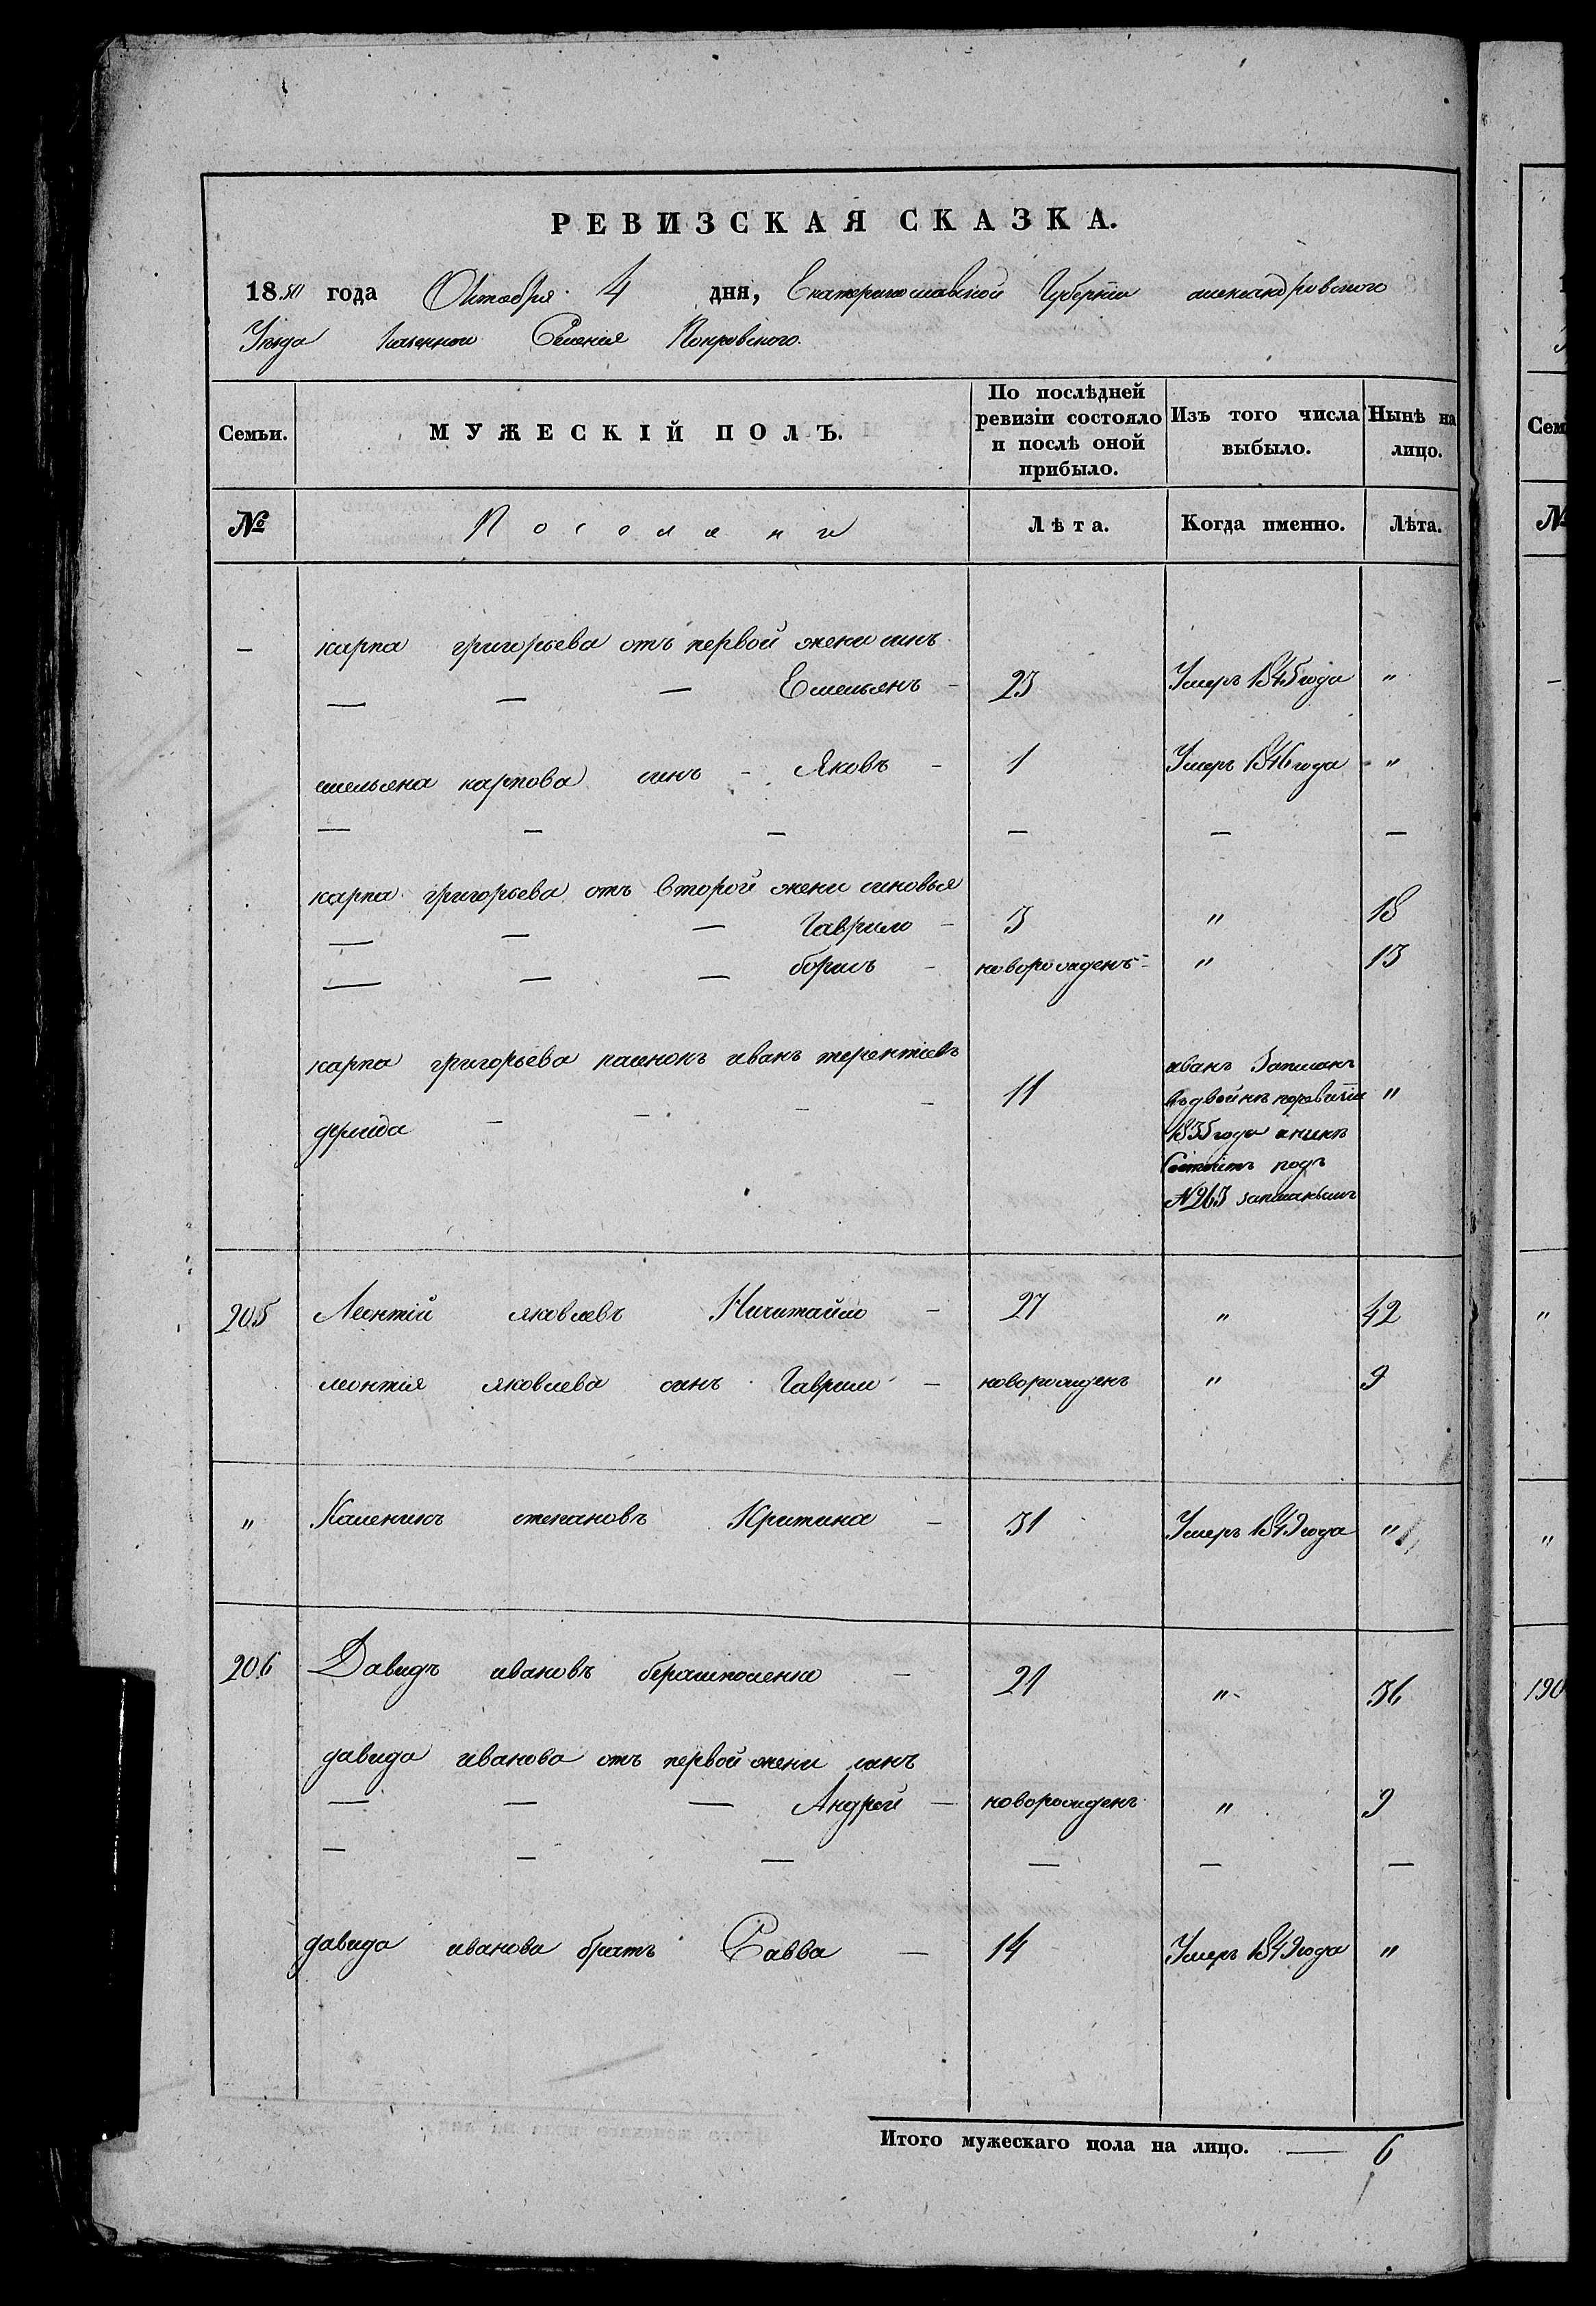 РЕВИЗСКАЯ СКАЗКА.
1850 года Октября 4 дня, Екатеринославской Губернии александровского
Уезда Казенного Селения Покровского.
Семьи. МУЖЕСКІЙ ПОЛЪ. По послѣдней ревизіи состояло и послѣ оной прибыло. Изъ того числа выбыло. Нынѣ на лицо.
№ Поселяни Лѣта. Когда именно. Лѣта.
— карпа григорьева отъ первой жени синъ
— — — Емельянъ — 23 Умеръ 1845 года "
емельяна карпова синъ - Яковъ - 1 Умеръ 1846 года "
— — — — — —
карпа григорьева отъ второй жени синовья
— — — Гаврило - 3 " 18
— — — борисъ - новорожденъ - " 13
карпа григорьева пасинокъ иванъ терентіевъ
11 "
иванъ Записанъ
вдвойнѣ поревизіи
1835 года а нинѣ
Состоитъ подъ
№263
205 Леонтій яковлевъ Ничитайло - 27 " 42
леонтія яковлева синъ Гаврило - новорожденъ " 9
" Каленикъ степановъ Критина - 31 Умеръ 1849 года "
206 Давидъ ивановъ - 21 " 36
давида иванова отъ первой жени синъ
— — — Андрей — новорожденъ " 9
— — — — — —
давида иванова братъ Савва — 14 Умеръ 1849 года "
Итого мужескаго пола на лицо. — 6
Сем
№
"
"
190